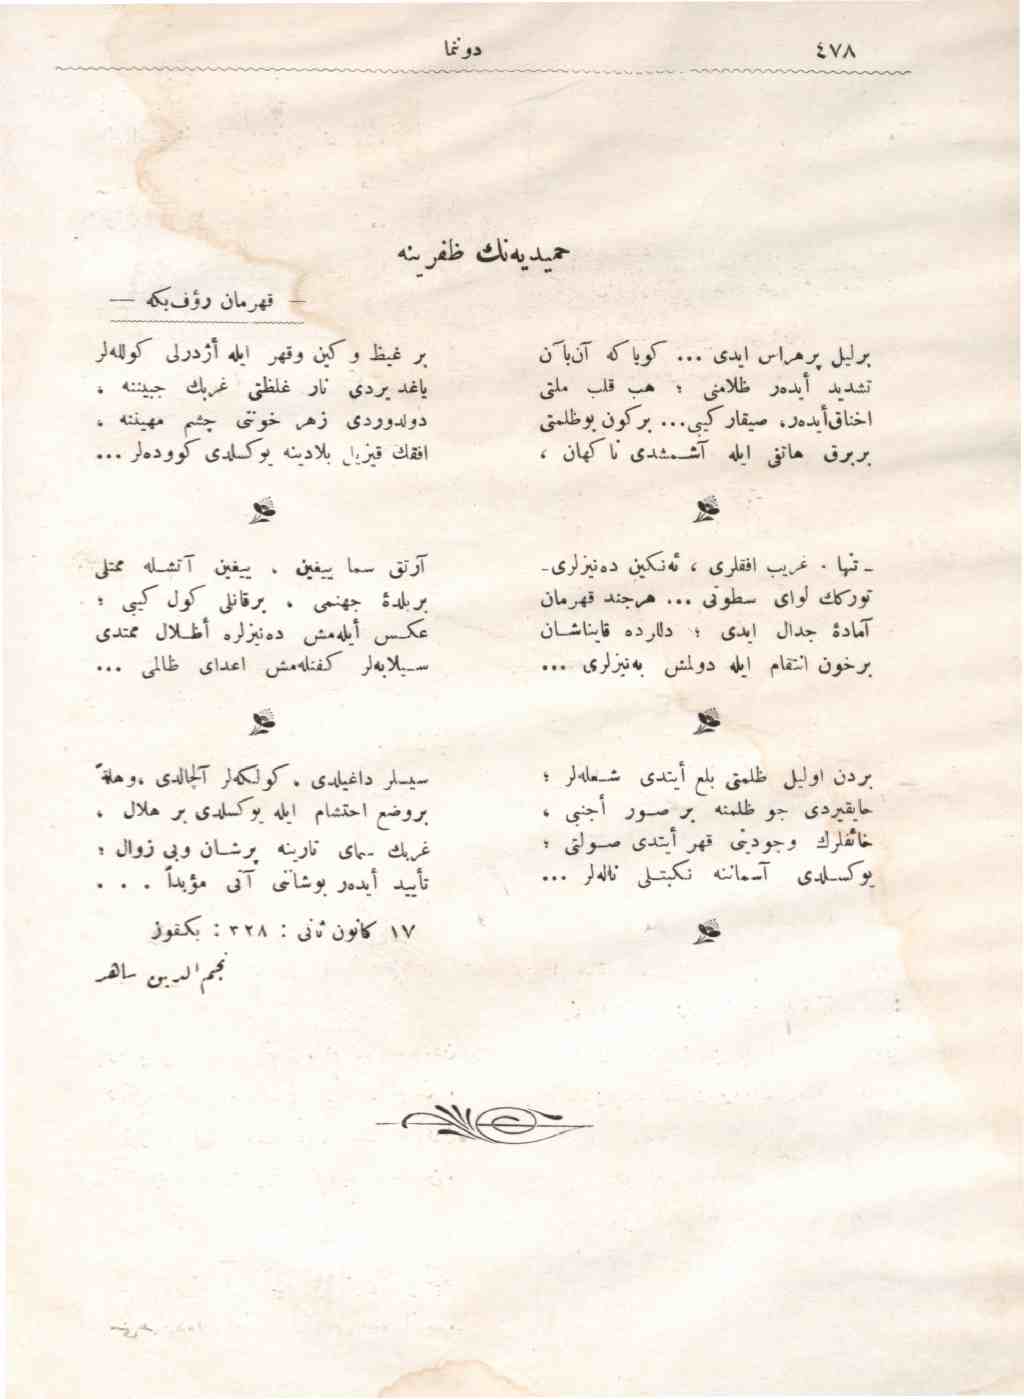 ٤٧٨
دوننما
حمیدیه‌نك ظفرینه
— قهرمان رؤف‌بكه —
برلیل پرهراس ایدی ... كویا كه آن‌بآن
تشدید أیده‌ر ظلامنی ؛ هب قلب ملتی
اخناق‌أیده‌ر، صیقار كیبی... بركون بوظلمتی
بربرق هاتفی ایله آشـمشدی نا كهان ،
ـ تنها ٠ غریب افقلری ، ئه‌نكین ده‌نیزلری ـ
تورك‌ك لوای سطوتی ... هرجند قهرمان
آمادهٔ جدال ایدی ؛ دللرده قایناشـان
برخون انتقام ایله دولمش به‌نیزلری ...
بردن اولیل ظلمتی بلع أیتدی شـعله‌لر ؛
حایقیردی جو ظلمته بر صـور أجنبی ،
خائفلرك وجودینی قهر أیتدی صـولتی ؛
یوكسـلدی آسماننه نكبتـلی ناله‌لر ...
بر غیظ و كین وقهر ایله أژدرلی كولله‌لر
یاغدیردی نار غلظتی غربك جبیننه ،
دولدوردی زهر خونتی چشم مهیننه ،
افقك قیزیل بلادینه یوكسلدی كووده‌لر ...
آرتق سما ییغین ، ییغین آتشـله ممتلی
بربلدهٔ جهنمی ، برقانلی كول كیبی ؛
عكـس أیله‌مش ده‌نیزلره أظـلال ممتدی
سـیلابه‌لر كفنله‌مش اعدای ظالمی ...
سیـلر داغیلدی ، كولكه‌لر آلچالدی ،وهلةً
بروضع احتشام ایله یوكسلدی بر هلال ،
غربك سمای تارینه پرشـان وبی زوال ؛
تأیید أیده‌ر بوشاننی آتی مؤبداً . . .
١٧ كانون ثانی : ٣٢٨ : بكقوز
نجم الدین ساهر